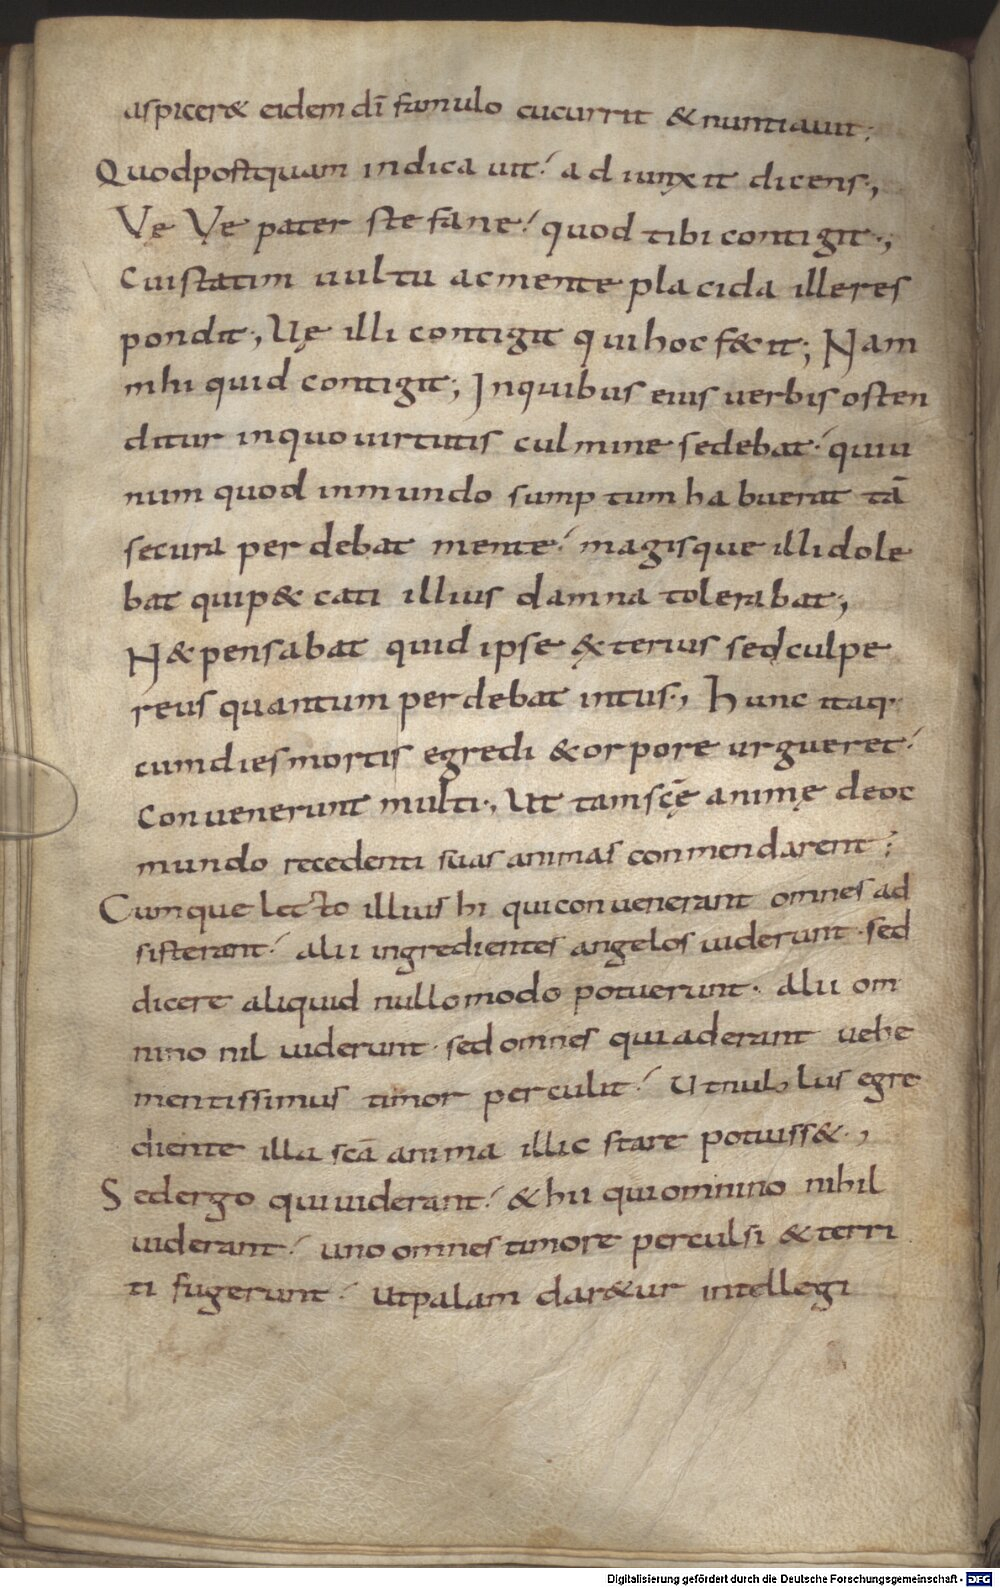 aspicer& eidem dī famulo cucurrit & nuntiauit;
Quod postquam indicauit; adiunxit dicens;,
Vę Vę pater stefane; quod tibi contigit;,
Cui statim uultu ac mente placida ille res
pondit;, Uę illi contigit qui hoc f&it; Nam
mihi quid contigit; In quibus eius uerbis osten
ditur in quo uirtutis culmine sedebat; qui u
num quod in mundo sumptum habuerat tā
secura perdebat mente; magisque illi dole
bat qui p&cati illius damna tolerabat;,
N& pensabat quid ipse &terius sed culpe
reus quantum perdebat intus;, Hunc itaq·
cum dies mortis egredi &orpore urgueret;
Conuenerunt multi;, Ut tam scę̄ animę de oc
mundo recedenti suas animas conmendarent;
Cumque lecto illius hi qui conuenerant omnes ad
sisterant; alii ingredientes angelos uiderunt · sed
dicere aliquid nullo modo potuerunt · alii om
nino nil uiderunt · sed omnes qui aderant uehe
mentissimus timor perculit; Ut nullus egre
diente illa scā anima illic stare potuiss&;,
Sed ergo qui uiderant; & hii qui omnino nihil
uiderant; uno omnes timore perculsi & terri
ti fugerunt; Ut palam dar&ur intellegi
Digitalisierung gefördert durch die Deutsche Forschungsgemeinschaft - DFG